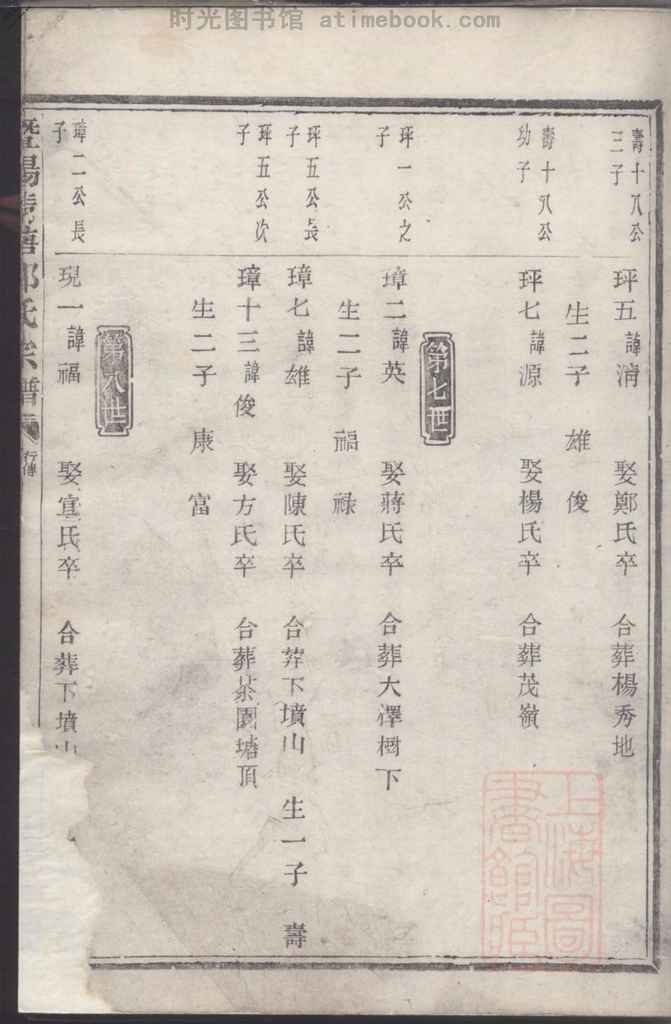 时光图书馆 atimebook.com
壽十八公
三子
玶五諱淯 娶鄭氏卒 合葬楊秀地
生二子 雄 俊
壽十八公
幼子
玶七諱源 娶楊氏卒 合葬茂嶺
第七世
玶一公之
子
璋二諱英 娶蔣氏卒 合葬大澤樹下
生二子 福 祿
玶五公長
子
璋七諱雄 娶陳氏卒 合葬下墳山 生一子 壽
玶五公次
子
璋十三諱俊 娶方氏卒 合葬茶園塘頂
生二子 康 富
第八世
璋二公長
子
現一諱福 娶宣氏卒 合葬下墳山
暨陽 氏宗譜 行傳
上海圖書館藏